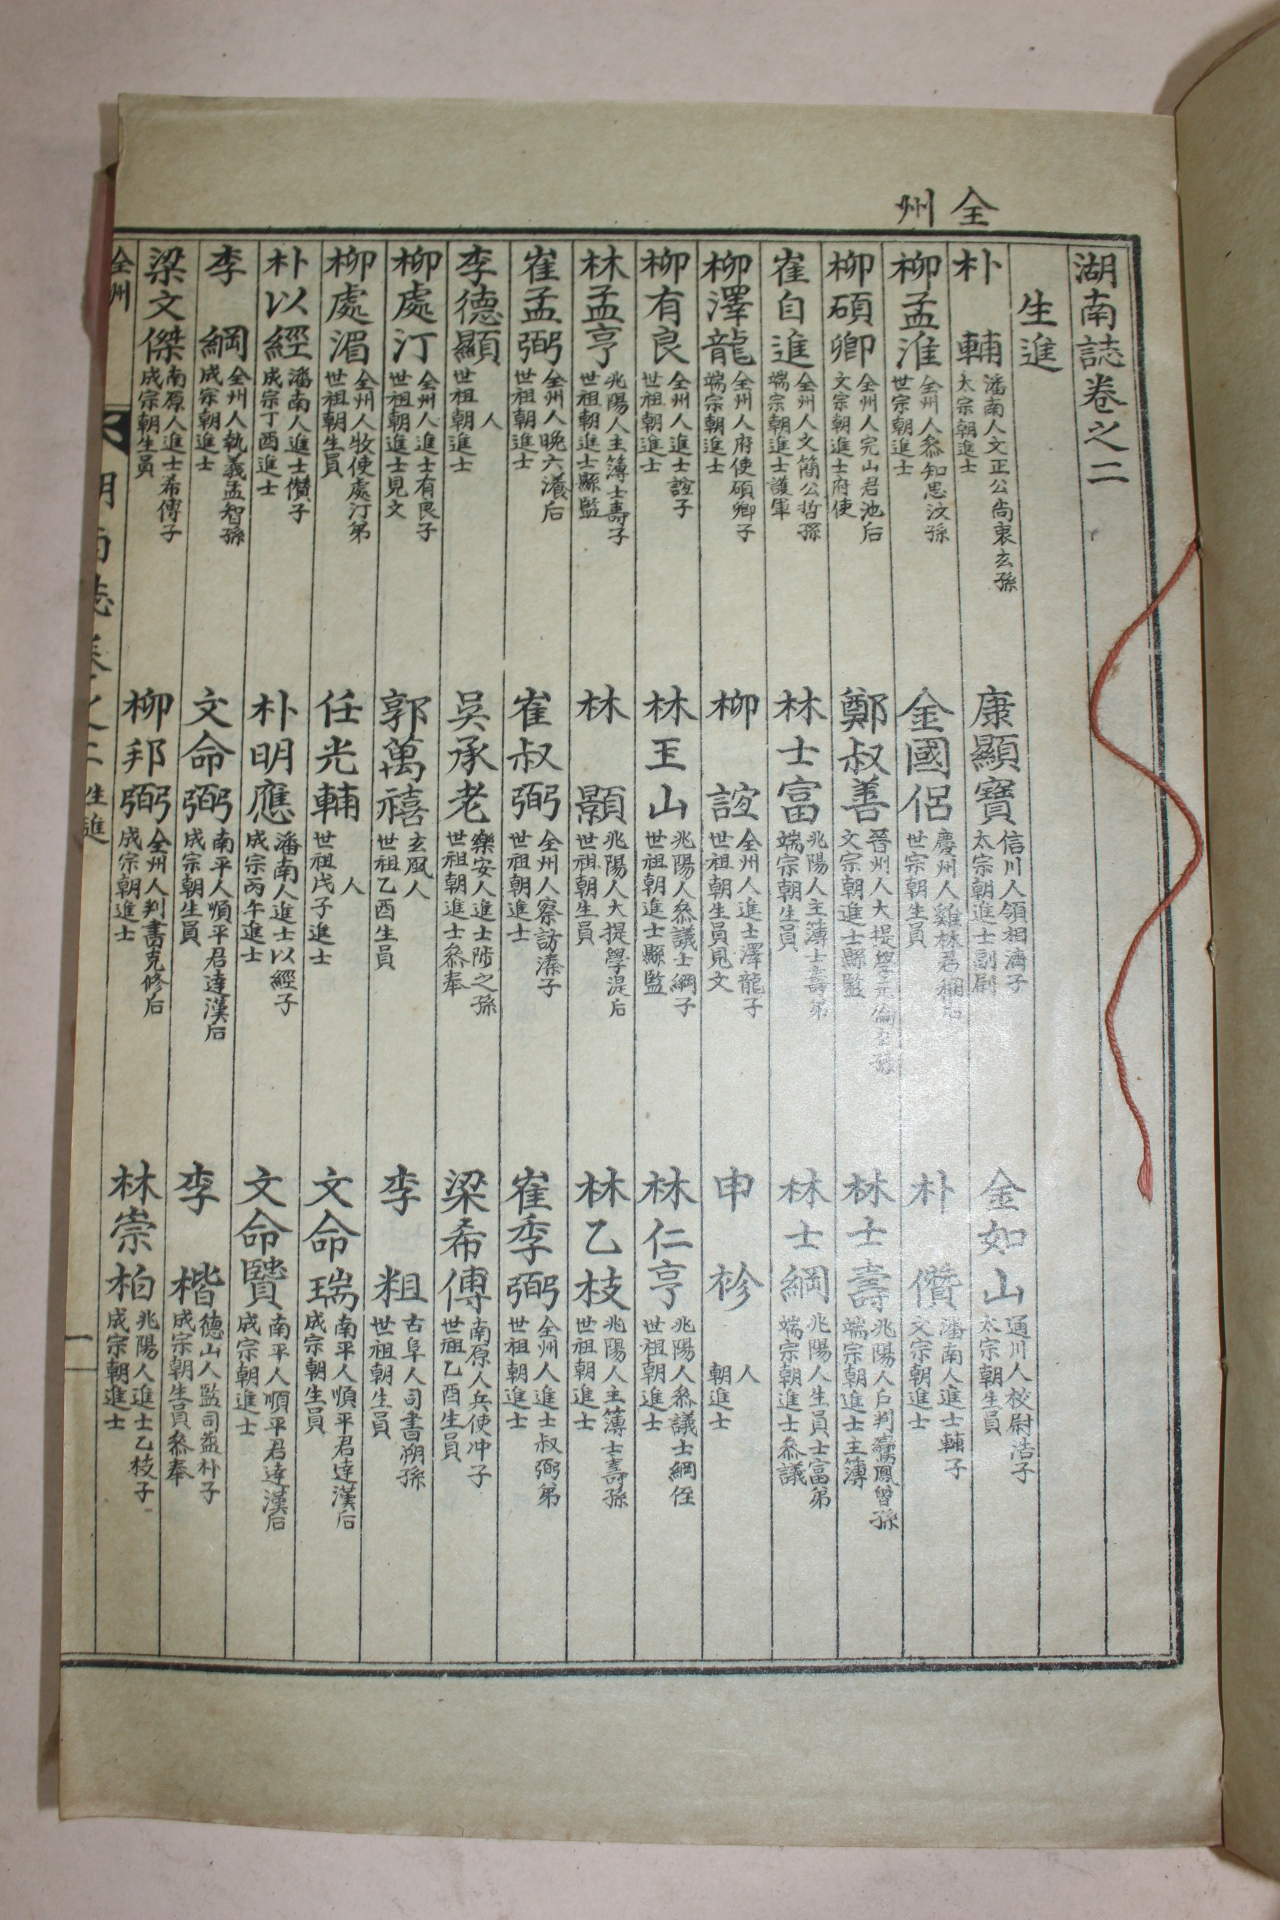 全州
湖南誌卷之二
生進
朴輔 潘南人文正公尙衷玄孫 太宗朝進士
康顯寶 信川人領相濟子 太宗朝進士副尉
金如山 通川人校尉浩子 太宗朝生員
柳孟淮 全州人叅知思汶孫 世宗朝進士
金國侶 慶州人雞林君稛后 世宗朝生員
朴儧 潘南人進士輔子 文宗朝進士
柳碩卿 全州人完山君池后 文宗朝進士府使
鄭叔善 晉州人大提學 文宗朝進士縣監
林士壽 兆陽人戶判 鳳曾孫 端宗朝進士主簿
崔自進 全州人文簡公哲孫 端宗朝進士護軍
林士富 兆陽人主簿士壽弟 端宗朝生員
林士綱 兆陽人生員士富弟 端宗朝進士叅議
柳澤龍 全州人府使碩卿子 端宗朝進士
柳誼 全州人進士澤龍子 世祖朝生員見文
申袗 人 朝進士
柳有良 全州人進士誼子 世祖朝進士
林玉山 兆陽人叅議士綱子 世祖朝進士縣監
林仁亨 兆陽人叅議士綱侄 世祖朝進士
林孟亨 兆陽人主簿士壽子 世祖朝進士縣監
林顥 兆陽人大提學湜后 世祖朝生員
林乙枝 兆陽人主簿士壽孫 世祖朝進士
崔孟弼 全州人晩六瀁后 世祖朝進士
崔叔弼 全州人察訪溱子 世祖朝進士
崔季弼 全州人進士叔弼弟 世祖朝進士
李德顯 人 世祖朝進士
吳承老 樂安人進士陟之孫 世祖朝進士叅奉
梁希傅 南原人兵使冲子 世祖乙酉生員
柳處汀 全州人進士有良子 世祖朝進士見文
郭萬禧 玄風人 世祖乙酉生員
李粗 古阜人司書朔孫 世祖朝生員
柳處湄 全州人牧使處汀弟 世祖朝生員
任光輔 人 世祖戊子進士
文命瑞 南平人順平君達漢后 成宗朝生員
朴以經 潘南人進士儧子 成宗丁酉進士
朴明應 潘南人進士以經子 成宗丙午進士
文命賢 南平人順平君達漢后 成宗朝進士
李綱 全州人執義孟智孫 成宗朝進士
文命弼 南平人順平君達漢后 成宗朝生員
李楷 德山人監司益朴子 成宗朝生員叅奉
梁文傑 南原人進士希傅子 成宗朝生員
柳邦弼 全州人判書克修后 成宗朝進士
林崇柏 兆陽人進士乙枝子 成宗朝進士
全州 湖南誌卷之二 生進 一